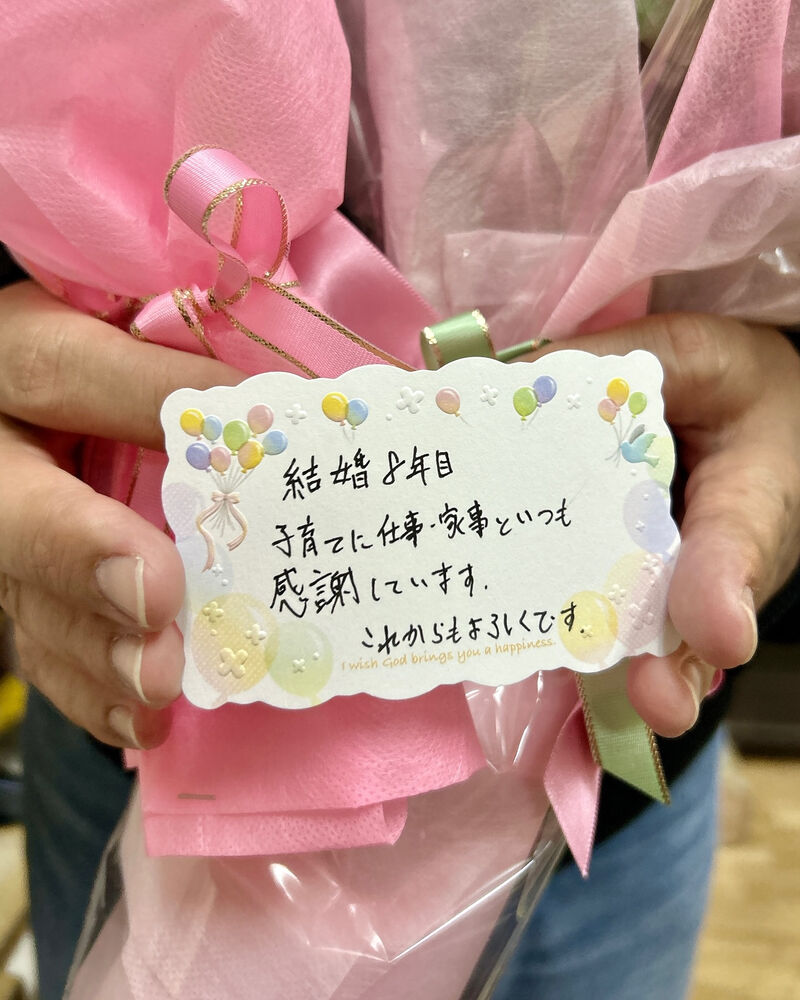 結婚8年目
子育てに仕事・家事といつも
感謝しています.
これからもよろしくです.
I wish God brings you a happiness.